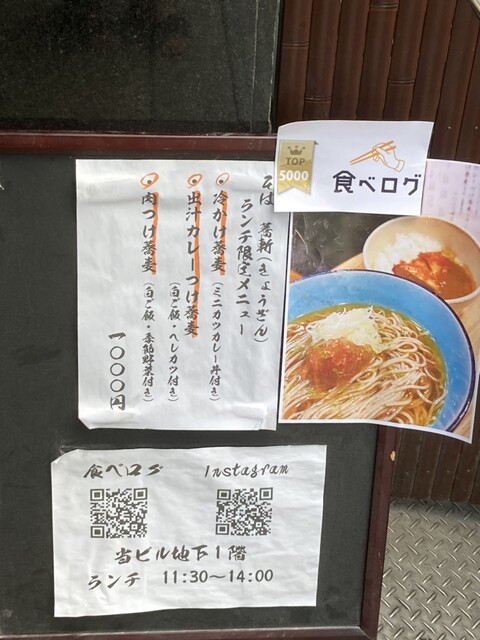 TOP
5000
食べログ
そば 蕎斬(きょうざん)
ランチ限定メニュー
冷かけ蕎麦(ミニカツカレー丼付き)
出汁カレーつけ蕎麦
(白ご飯・ヘレカツ付き)
肉つけ蕎麦
(白ご飯・季節野菜付き)
一〇〇〇円
食べログ Instagram
当ビル地下1階
ランチ 11:30〜14:00